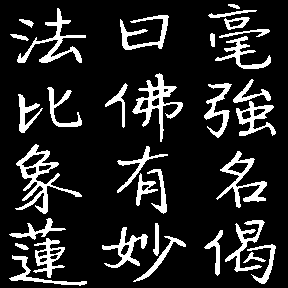 毫強名偈
曰佛有妙
法比象蓮